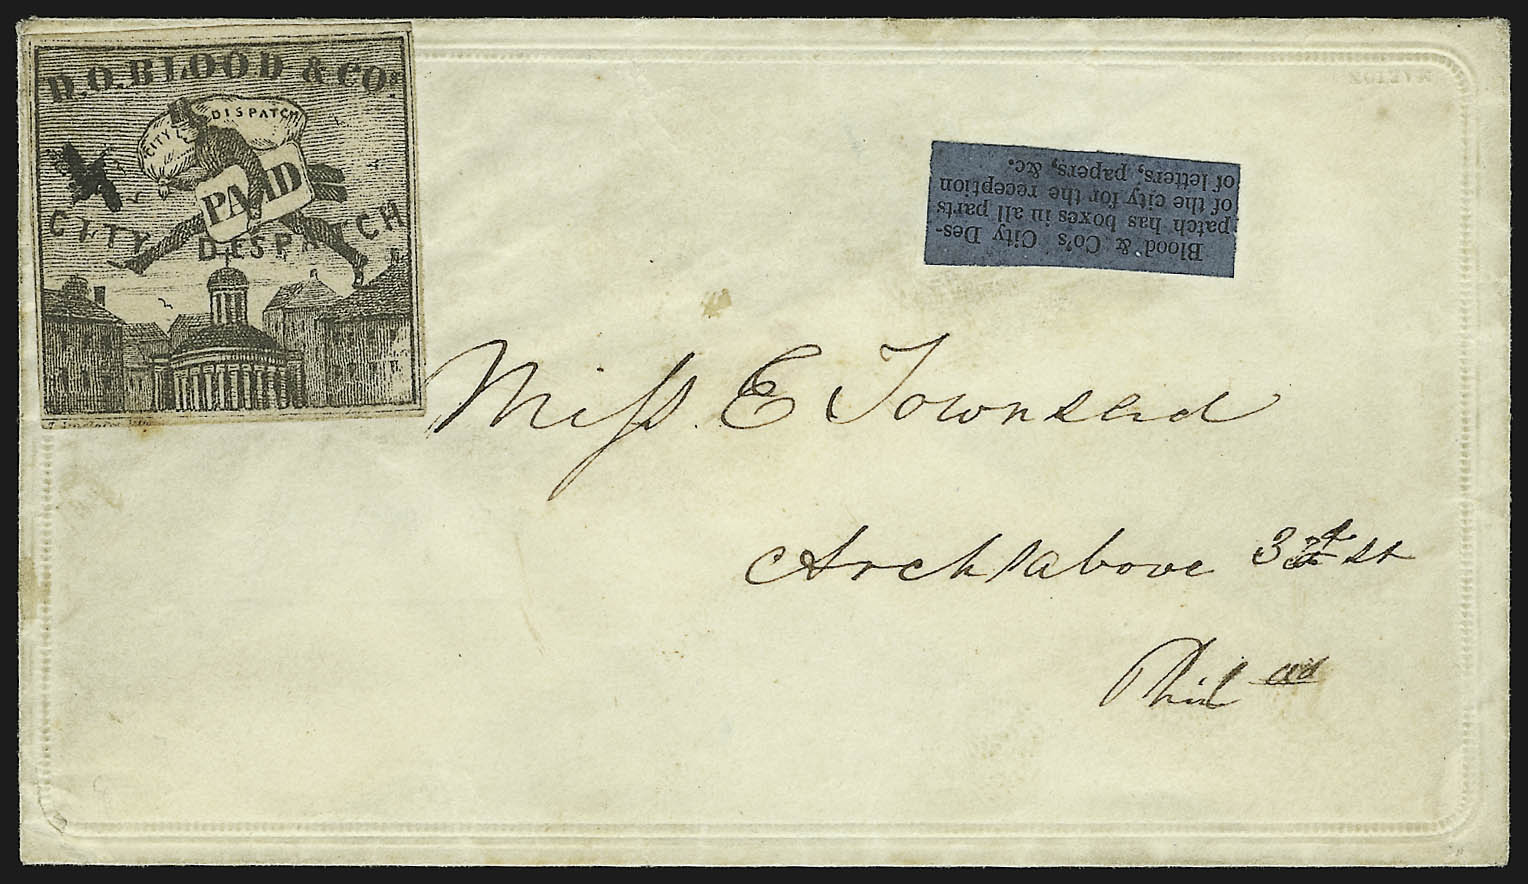 D.O.BLOOD & CO's
CITY DISPATCH
PAID
CITY DESPATCH
Blood & Co's City Des-
patch has boxes in all parts
of the city for the reception
of letters, papers, &c.
Miss E Townsend
Arch above 3d St
Philad